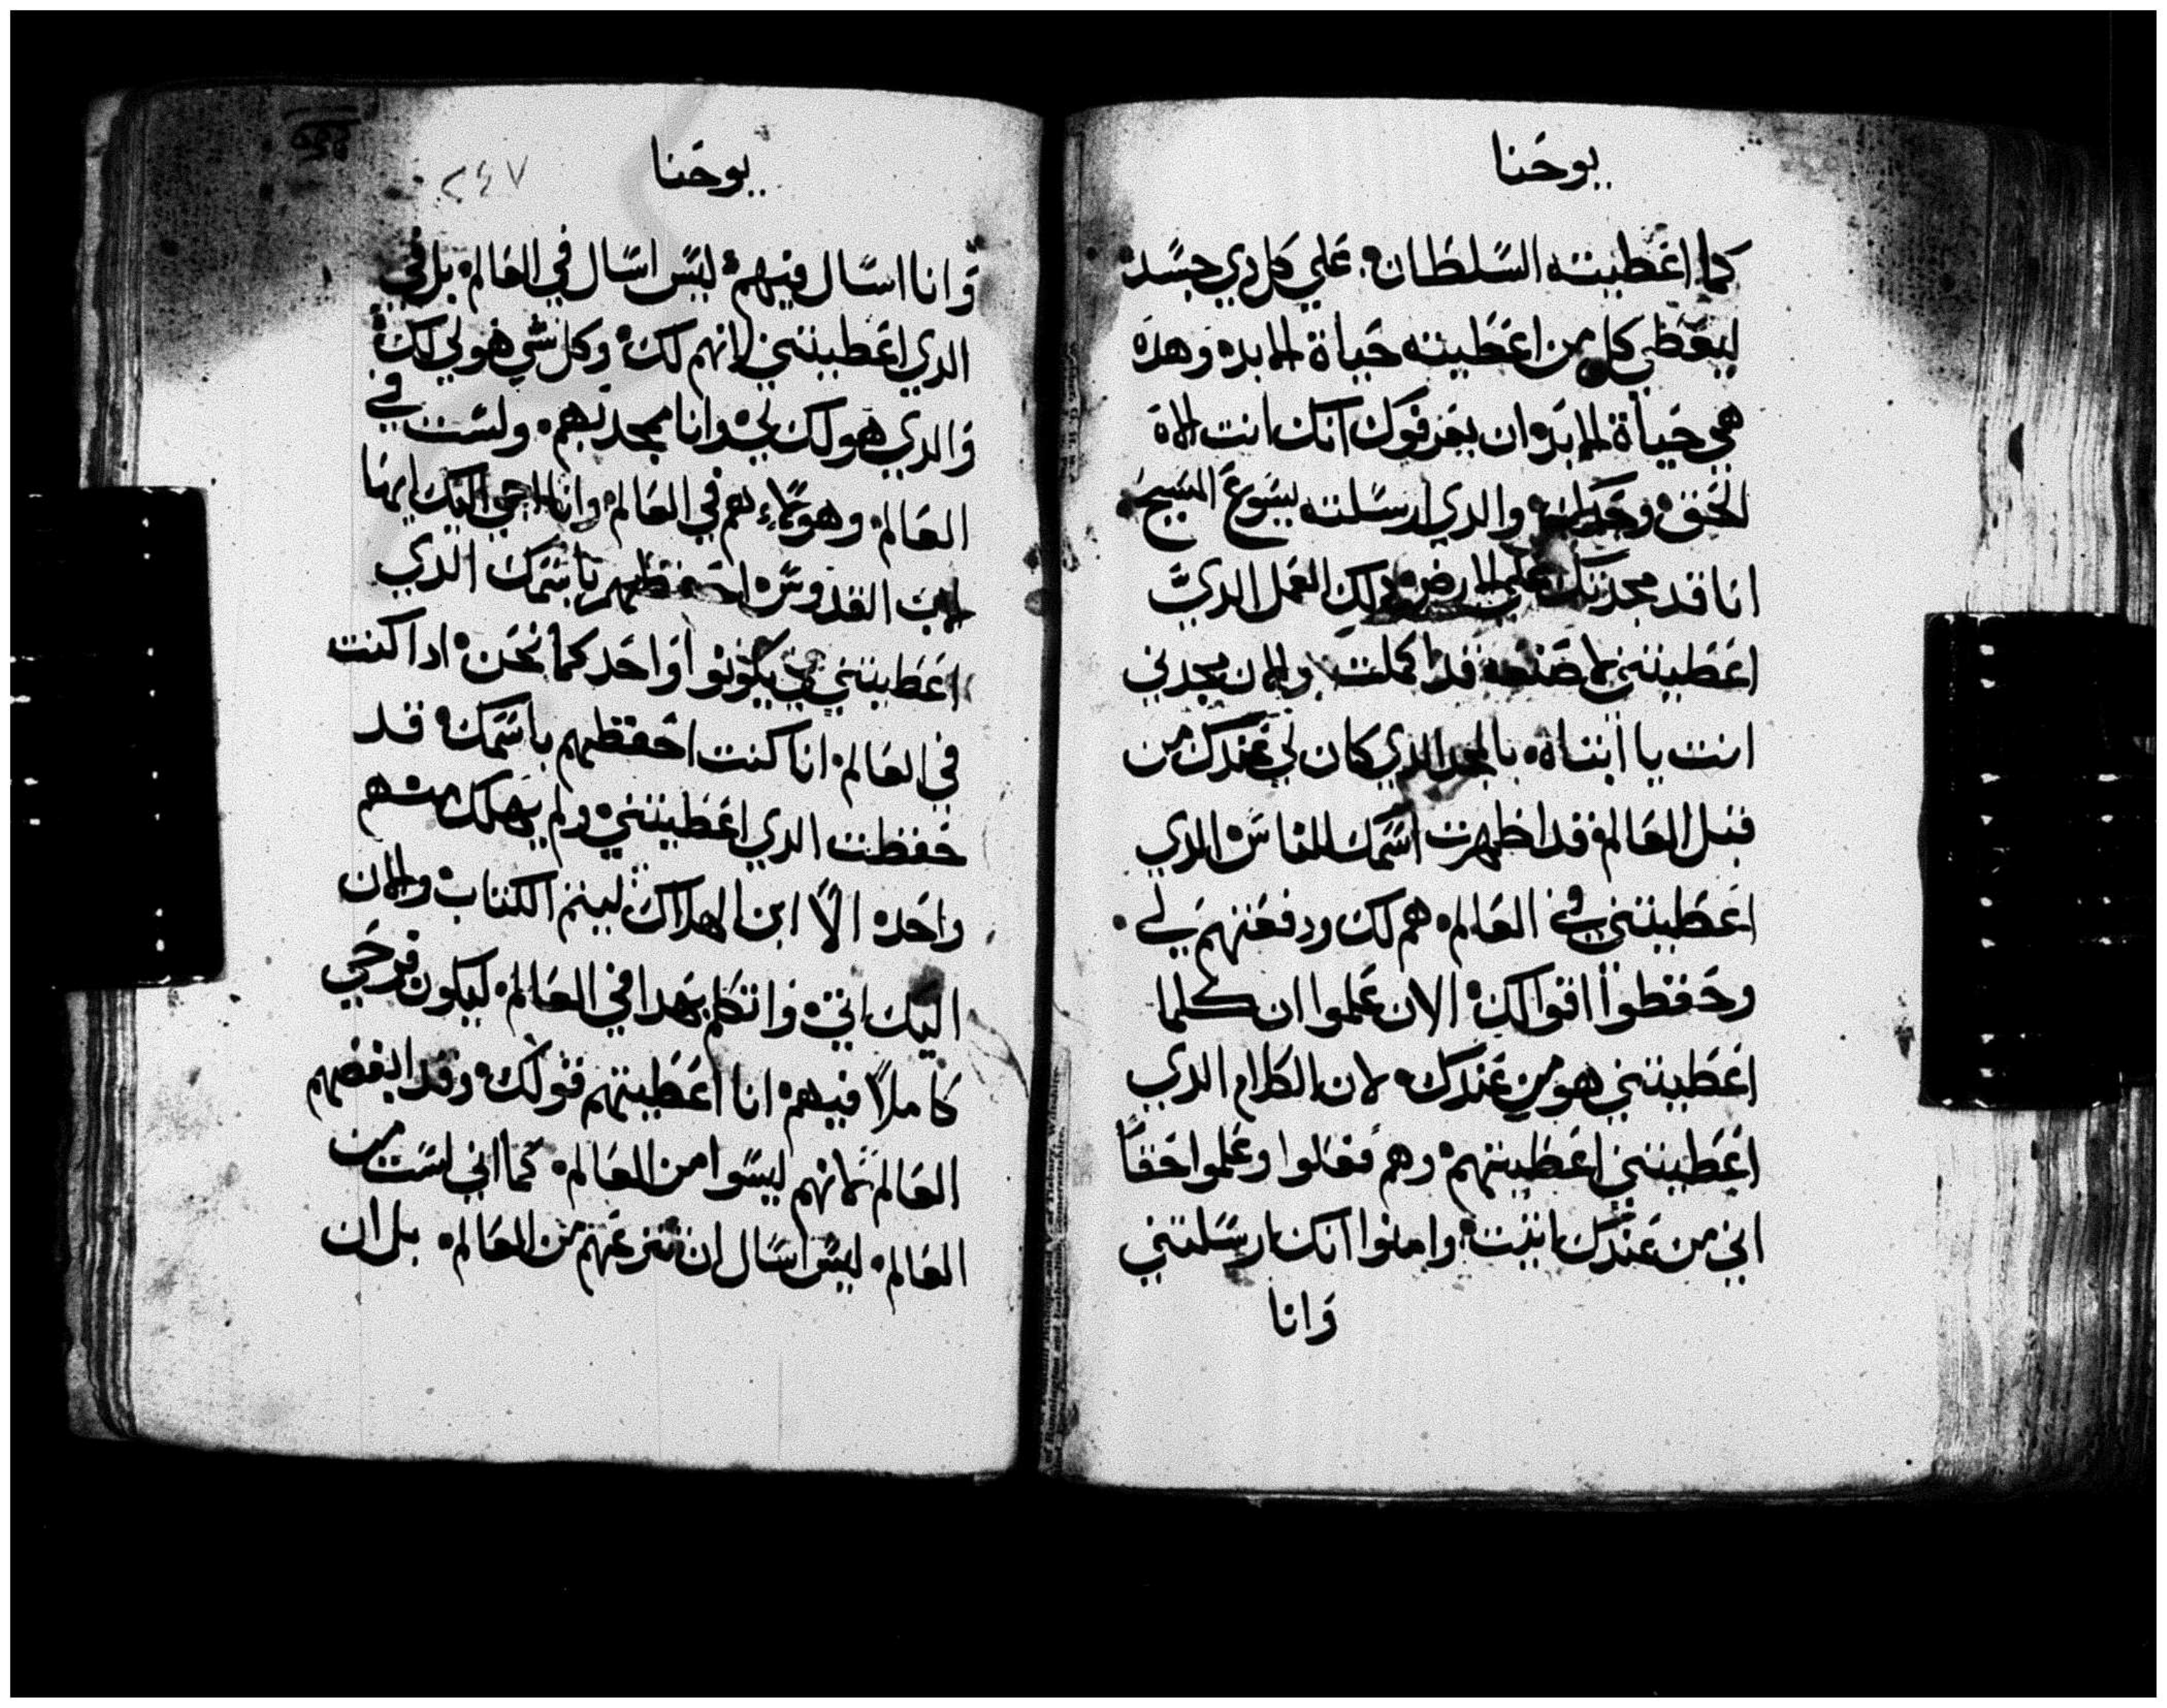 يوحنا
كما اعطيته السلطان علي كل دي جسد
ليعطي كل من اعطيته حياة الابده وهده
هي حياة الابده ان يعرفوك انك انت الاه
الحق وحدك والدي ارسلته يسوع المسيح
انا قد مجدتك علي الارض دلك العمل الدي
اعطيتني لاصنعه قد اكملت والان مجدني
انت يا ابتاه بالمجد الدي كان لي عندك من
قبل العالم قد اظهرت اسمك للناس الدي
اعطيتني في العالم هم لك ودفعتهم لي
وحفظوا اقوالك الان علموا ان كلما
اعطيتني هو من عندك لان الكلام الدي
اعطيتني اعطيتهم وهم فقبلوا وعلموا حقاً
اني من عندك اتيت وامنوا انك ارسلتني
وانا
يوحنا
٢٤٧
وانا اسال فيهم ليس اسال في العالم بل في
الدي اعطيتني لانهم لك وكل شي هو لي لك
والدي هو لك لي وانا ممجد بهم ولست في
العالم وهولاء هم في العالم وانا اجي اليك ايها
الاب القدوس احفظهم باسمك الدي
اعطيتني لكي يكونوا واحد كما نحن ادا كنت
في العالم انا كنت احفظهم باسمك قد
حفظت الدي اعطيتني ولم يهلك منهم
واحده الاً ابن الهلاك ليتم الكتاب والان
اليك اتي واتكلم بهدا في العالم ليكون فرحي
كاملاً فيهم انا اعطيتهم قولك وقد ابغضهم
العالم لانهم ليسوا من العالم كما اني لست من
العالم ليس اسال ان تنزعهم من العالم بل ان